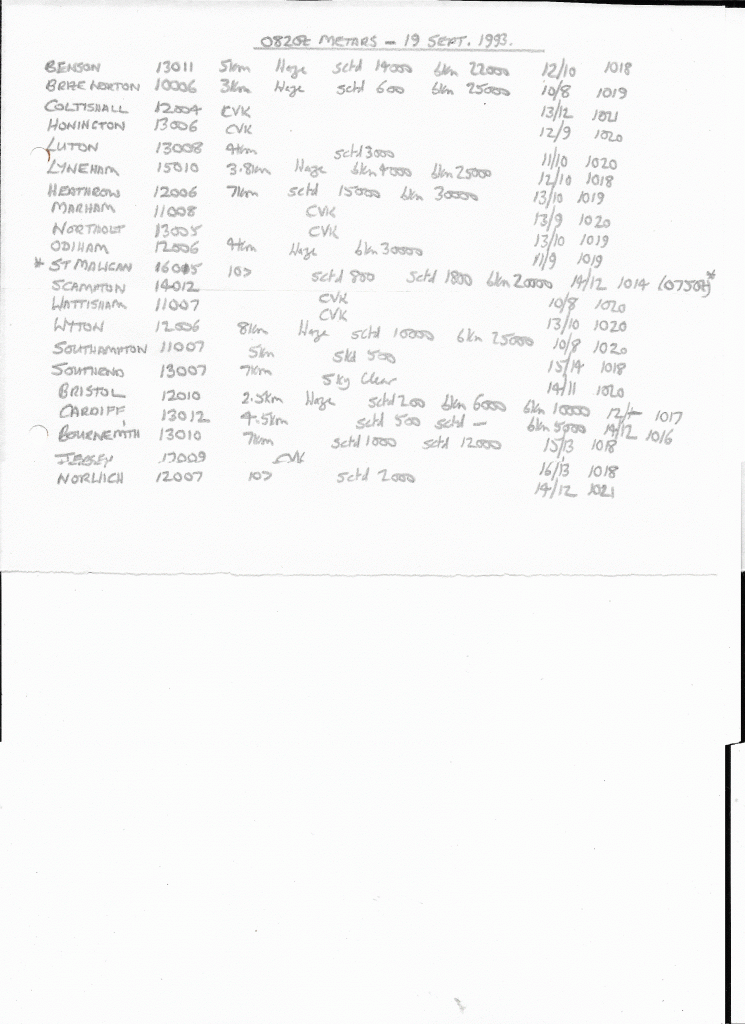 0820Z METARS - 19 SEPT. 1993.
BENSON 13011 5km Haze sctd 14000 bkn 22000 12/10 1018
BRIZE NORTON 10006 3km Haze sctd 600 bkn 25000 10/8 1019
COLTISHALL 12004 CVK 13/12 1021
HONINGTON 13006 CVK 12/9 1020
LUTON 13008 4km sctd 3000 11/10 1020
LYNEHAM 15010 3.8km Haze bkn 4000 bkn 25000 12/10 1018
HEATHROW 12006 7km sctd 15000 bkn 30000 13/10 1019
MARHAM 11008 CVK 13/9 1020
NORTHOLT 13005 CVK 13/10 1019
ODIHAM 12006 4km Haze bkn 30000 11/9 1019
* ST MAWGAN 16005 10> sctd 800 sctd 1800 bkn 20000 14/12 1014 (0750Z)*
SCAMPTON 14012 CVK 10/8 1020
WATTISHAM 11007 CVK 13/10 1020
WYTON 12006 8km Haze sctd 10000 bkn 25000 10/8 1020
SOUTHAMPTON 11007 5km sktd 500 15/14 1018
SOUTHEND 13007 7km Sky Clear 14/11 1020
BRISTOL 12010 2.5km Haze sctd 200 bkn 6000 bkn 10000 12/- 1017
CARDIFF 13012 4.5km sctd 500 sctd - bkn 5000 14/12 1016
BOURNEMTH 13010 7km sctd 1000 sctd 12000 15/13 1018
JERSEY 17009 CVK 16/13 1018
NORWICH 12007 10> sctd 2000 14/12 1021